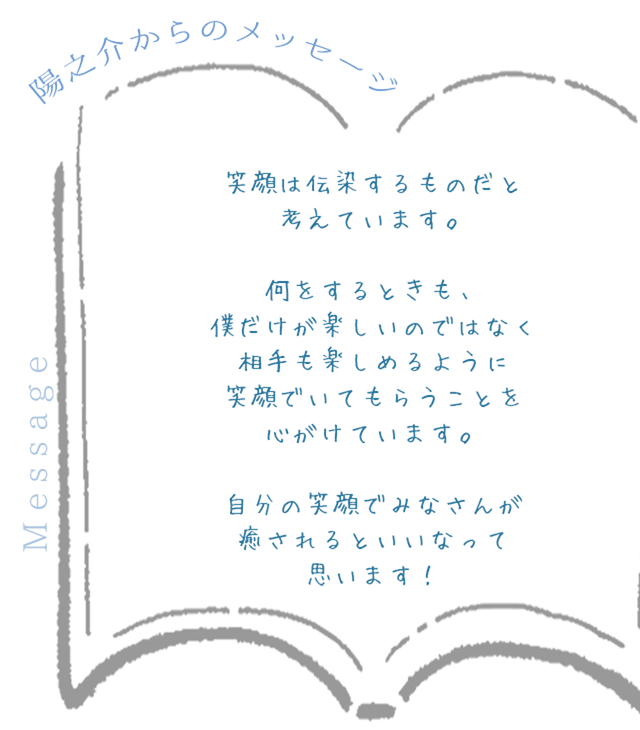 陽之介からのメッセージ
Message
笑顔は伝染するものだと
考えています。
何をするときも、
僕だけが楽しいのではなく
相手も楽しめるように
笑顔でいてもらうことを
心がけています。
自分の笑顔でみなさんが
癒されるといいなって
思います！